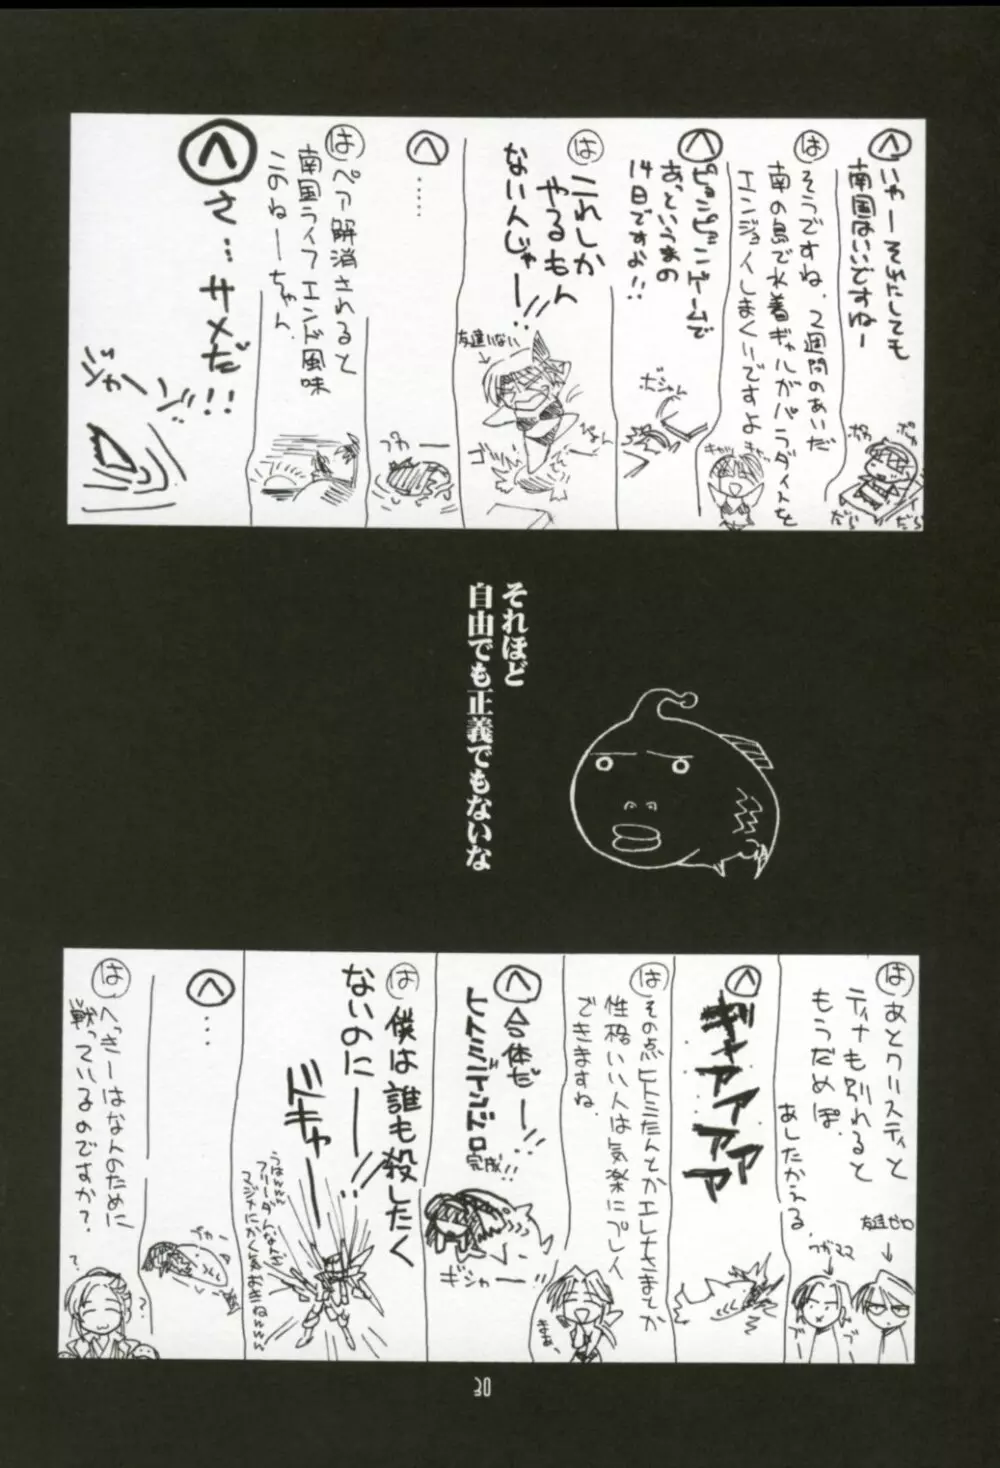 へ いやーそれにしても
南国はいいですねー
ポカ
ポカ
だら
だら
は そうですね、2週間のあいだ
南の島で水着ギャルがパラダイスを
エンジョイしまくりですよ
キャッ
へ ピョンピョンゲームで
あっというまの
14日ですよ!!
ボシャーン
は これしか
やるもん
ないんじゃー!!
友達いない
へ ……
プカー
は ペア解消されると
南国ライフエンド風味
このねーちゃん
へ さ… サメだ!!
ジャーン
それほど
自由でも正義でもないな
は あとクリスティと
ティナも別れると
もうだめぽ。
あしたかえる。
友達ゼロ
ワガママ
へ ギャアアアアア
は その点ヒトミたんとかエレナさまとか
性格いい人は気楽にプレイ
できますね。
まあ、
へ 合体だー!!
ヒトミティンドロ
完成!!
ギシャー!!
は 僕は誰も殺したく
ないのにー!!
ドギャー
うはwwww
フリーダムなんてww
マジにかくの久々だわねwww
へ …
プカー
は へっきーはなんのために
戦っているのですか?
?
?
30